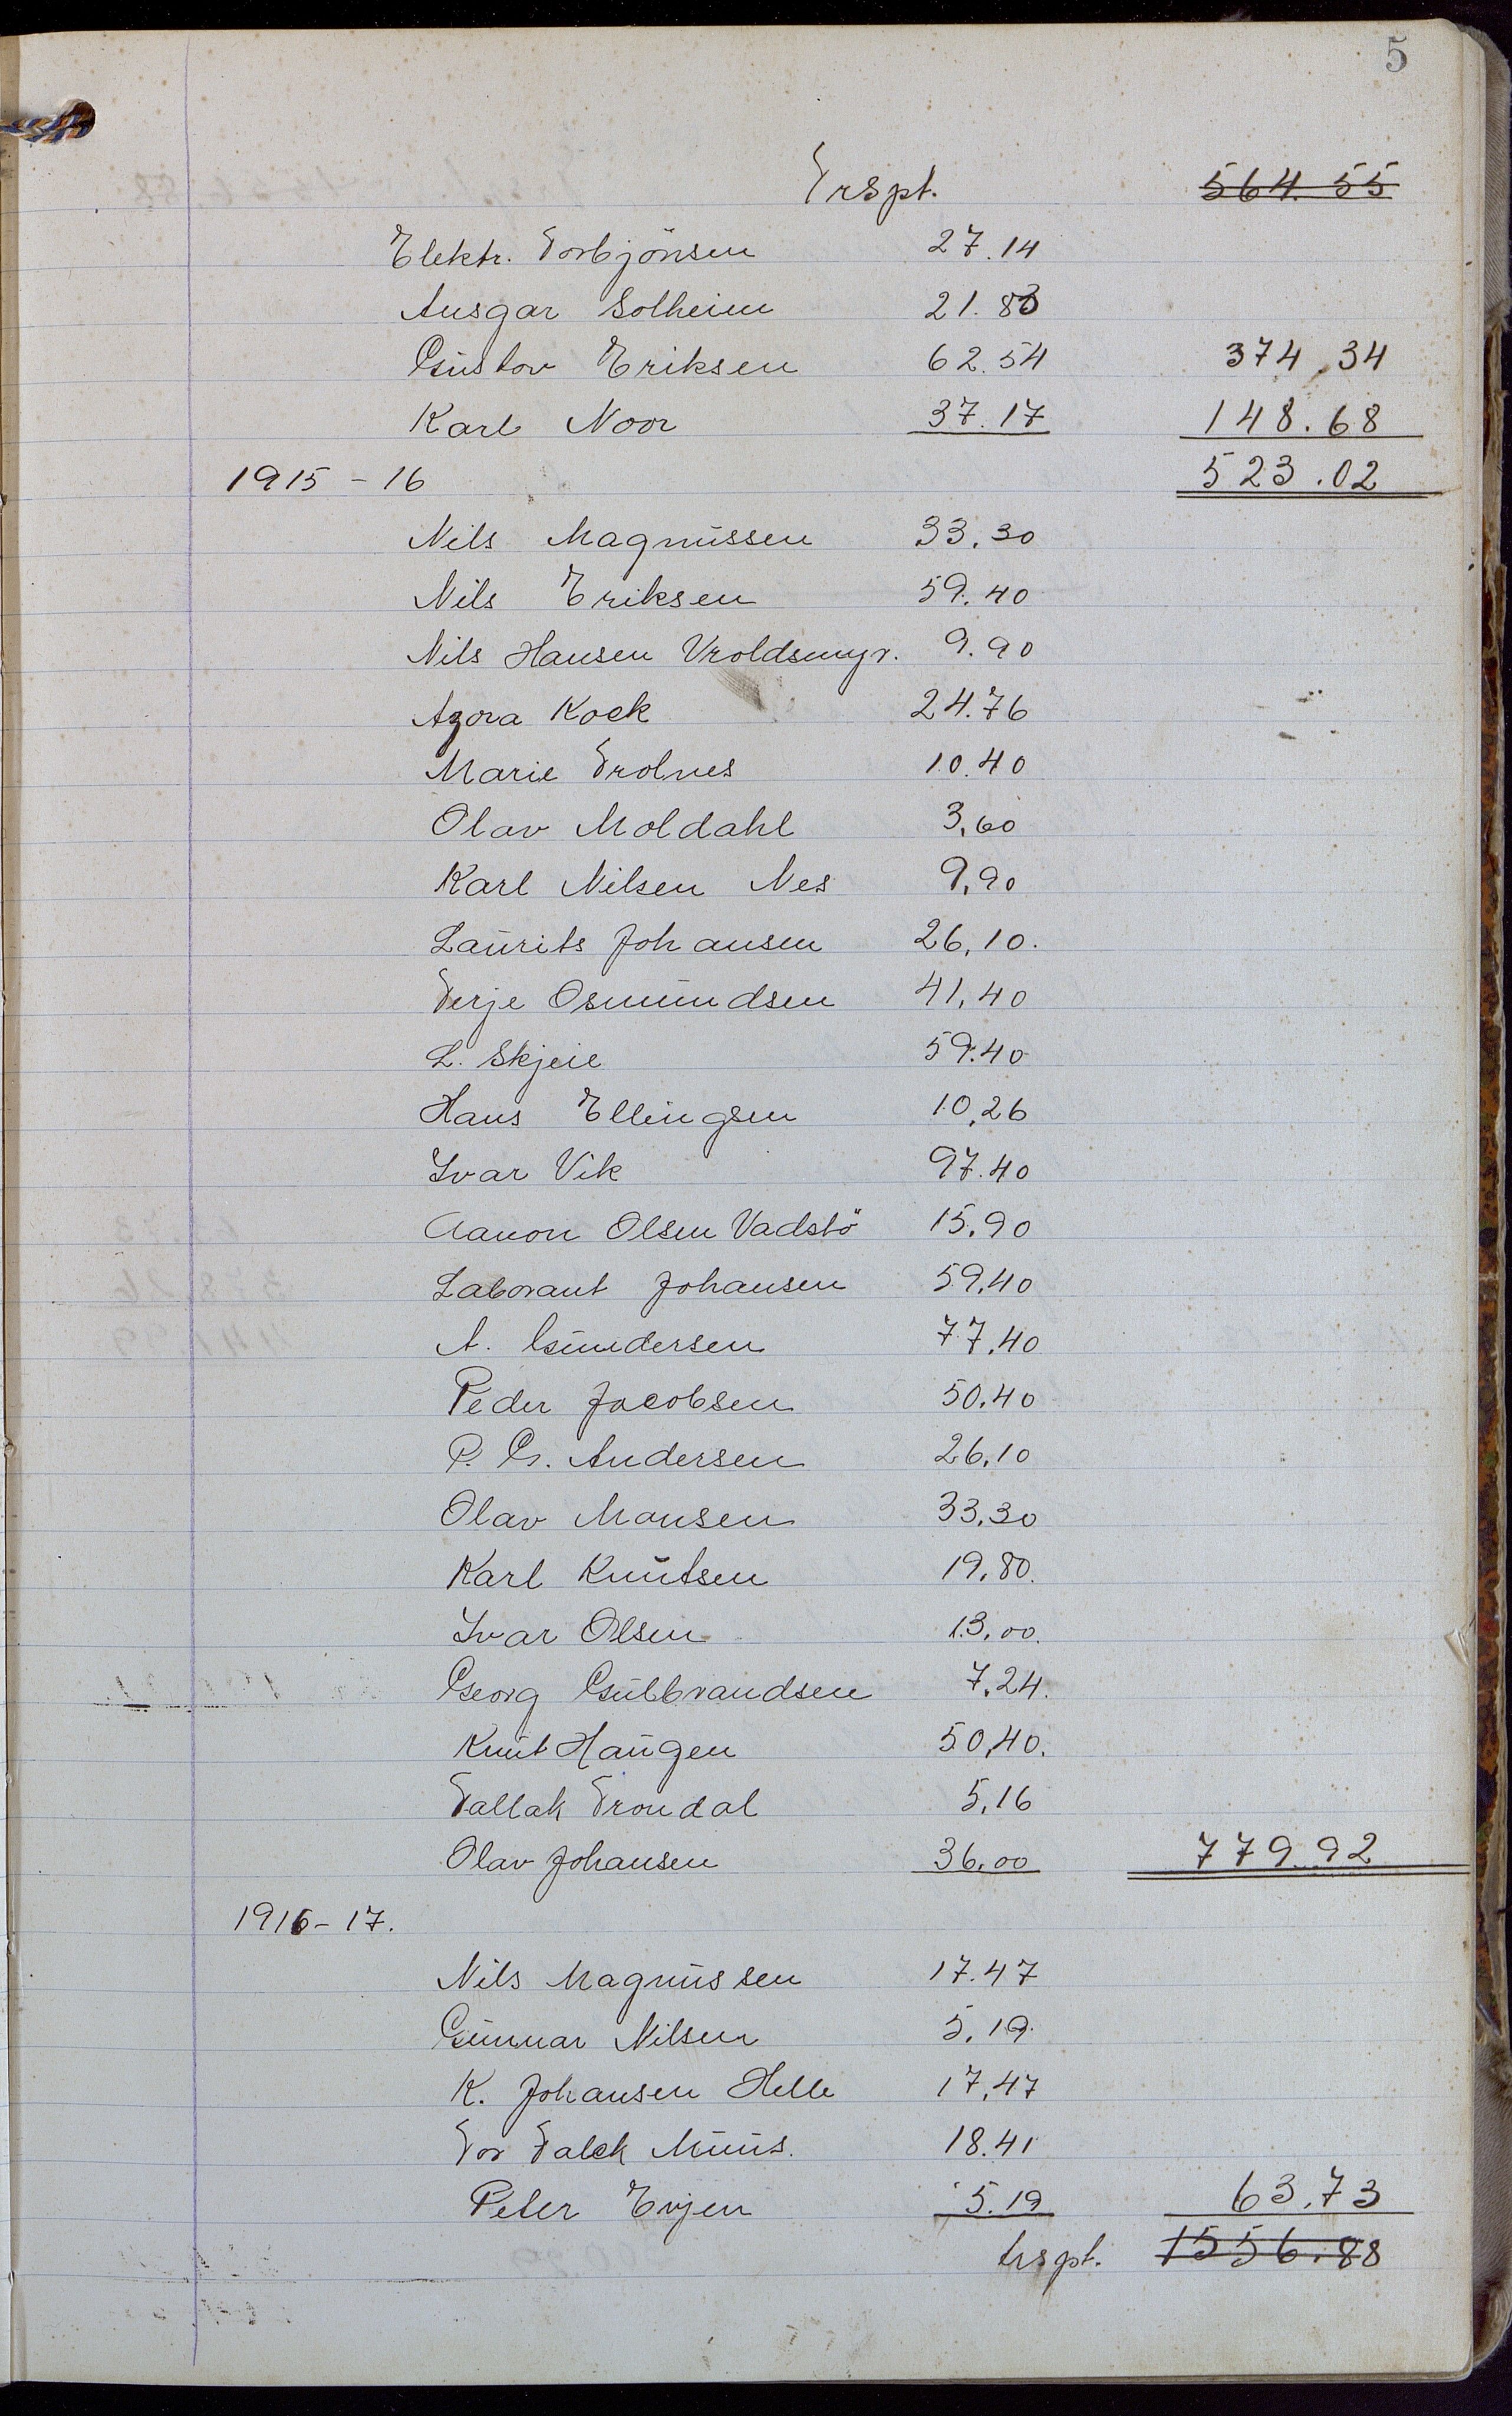 5
Trspt. 564.55
Elektr. Torbjönsen 27.14
Ansgar Solheim 21.83
Gustav Eriksen 62.54 374.34
Karl Noor 37.17 148.68
1915-16 523.02
Nils Magnussen 33,30
Nils Eriksen 59.40
Nils Hansen Vroldsmyr. 9.90
Agora Kock 24.76
Marie Trolnes 10.40
Olav Moldahl 3,60
Karl Nilsen Nes 9,90
Laurits Johansen 26,10.
Terje Osmundsen 41,40
L. Skjeie 59.40
Hans Ellingsen 10,26
Ivar Vik 97.40
Aanon Olsen Vadstö 15,90
Laborant Johansen 59,40
A. Gundersen 77,40
Peder Jacobsen 50,40
P. G. Andersen 26,10
Olav Monsen 33,30
Karl Knutsen 19,80.
Ivar Olsen 13,00.
Georg Gulbrandsen 7,24.
Knut Haugen 50,40.
Tallak Trondal 5,16
Olav Johansen 36,00 779.92
1916-17.
Nils Magnussen 17.47
Gunnar Nilsen 5,19.
K. Johansen Helle 17,47
Tor Falck Muus. 18.41
Peter Evjen 5.19 63,73
trspt. 1556.88